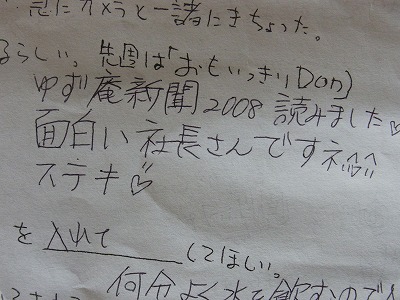 急にカメラと一諸にきちょった。
るらしい。先週は「おもいっきりDon」
ゆず庵新聞2008読みました
面白い社長さんですネ
ステキ♡
を 入れて してほしい。
何分よく水を飲むので